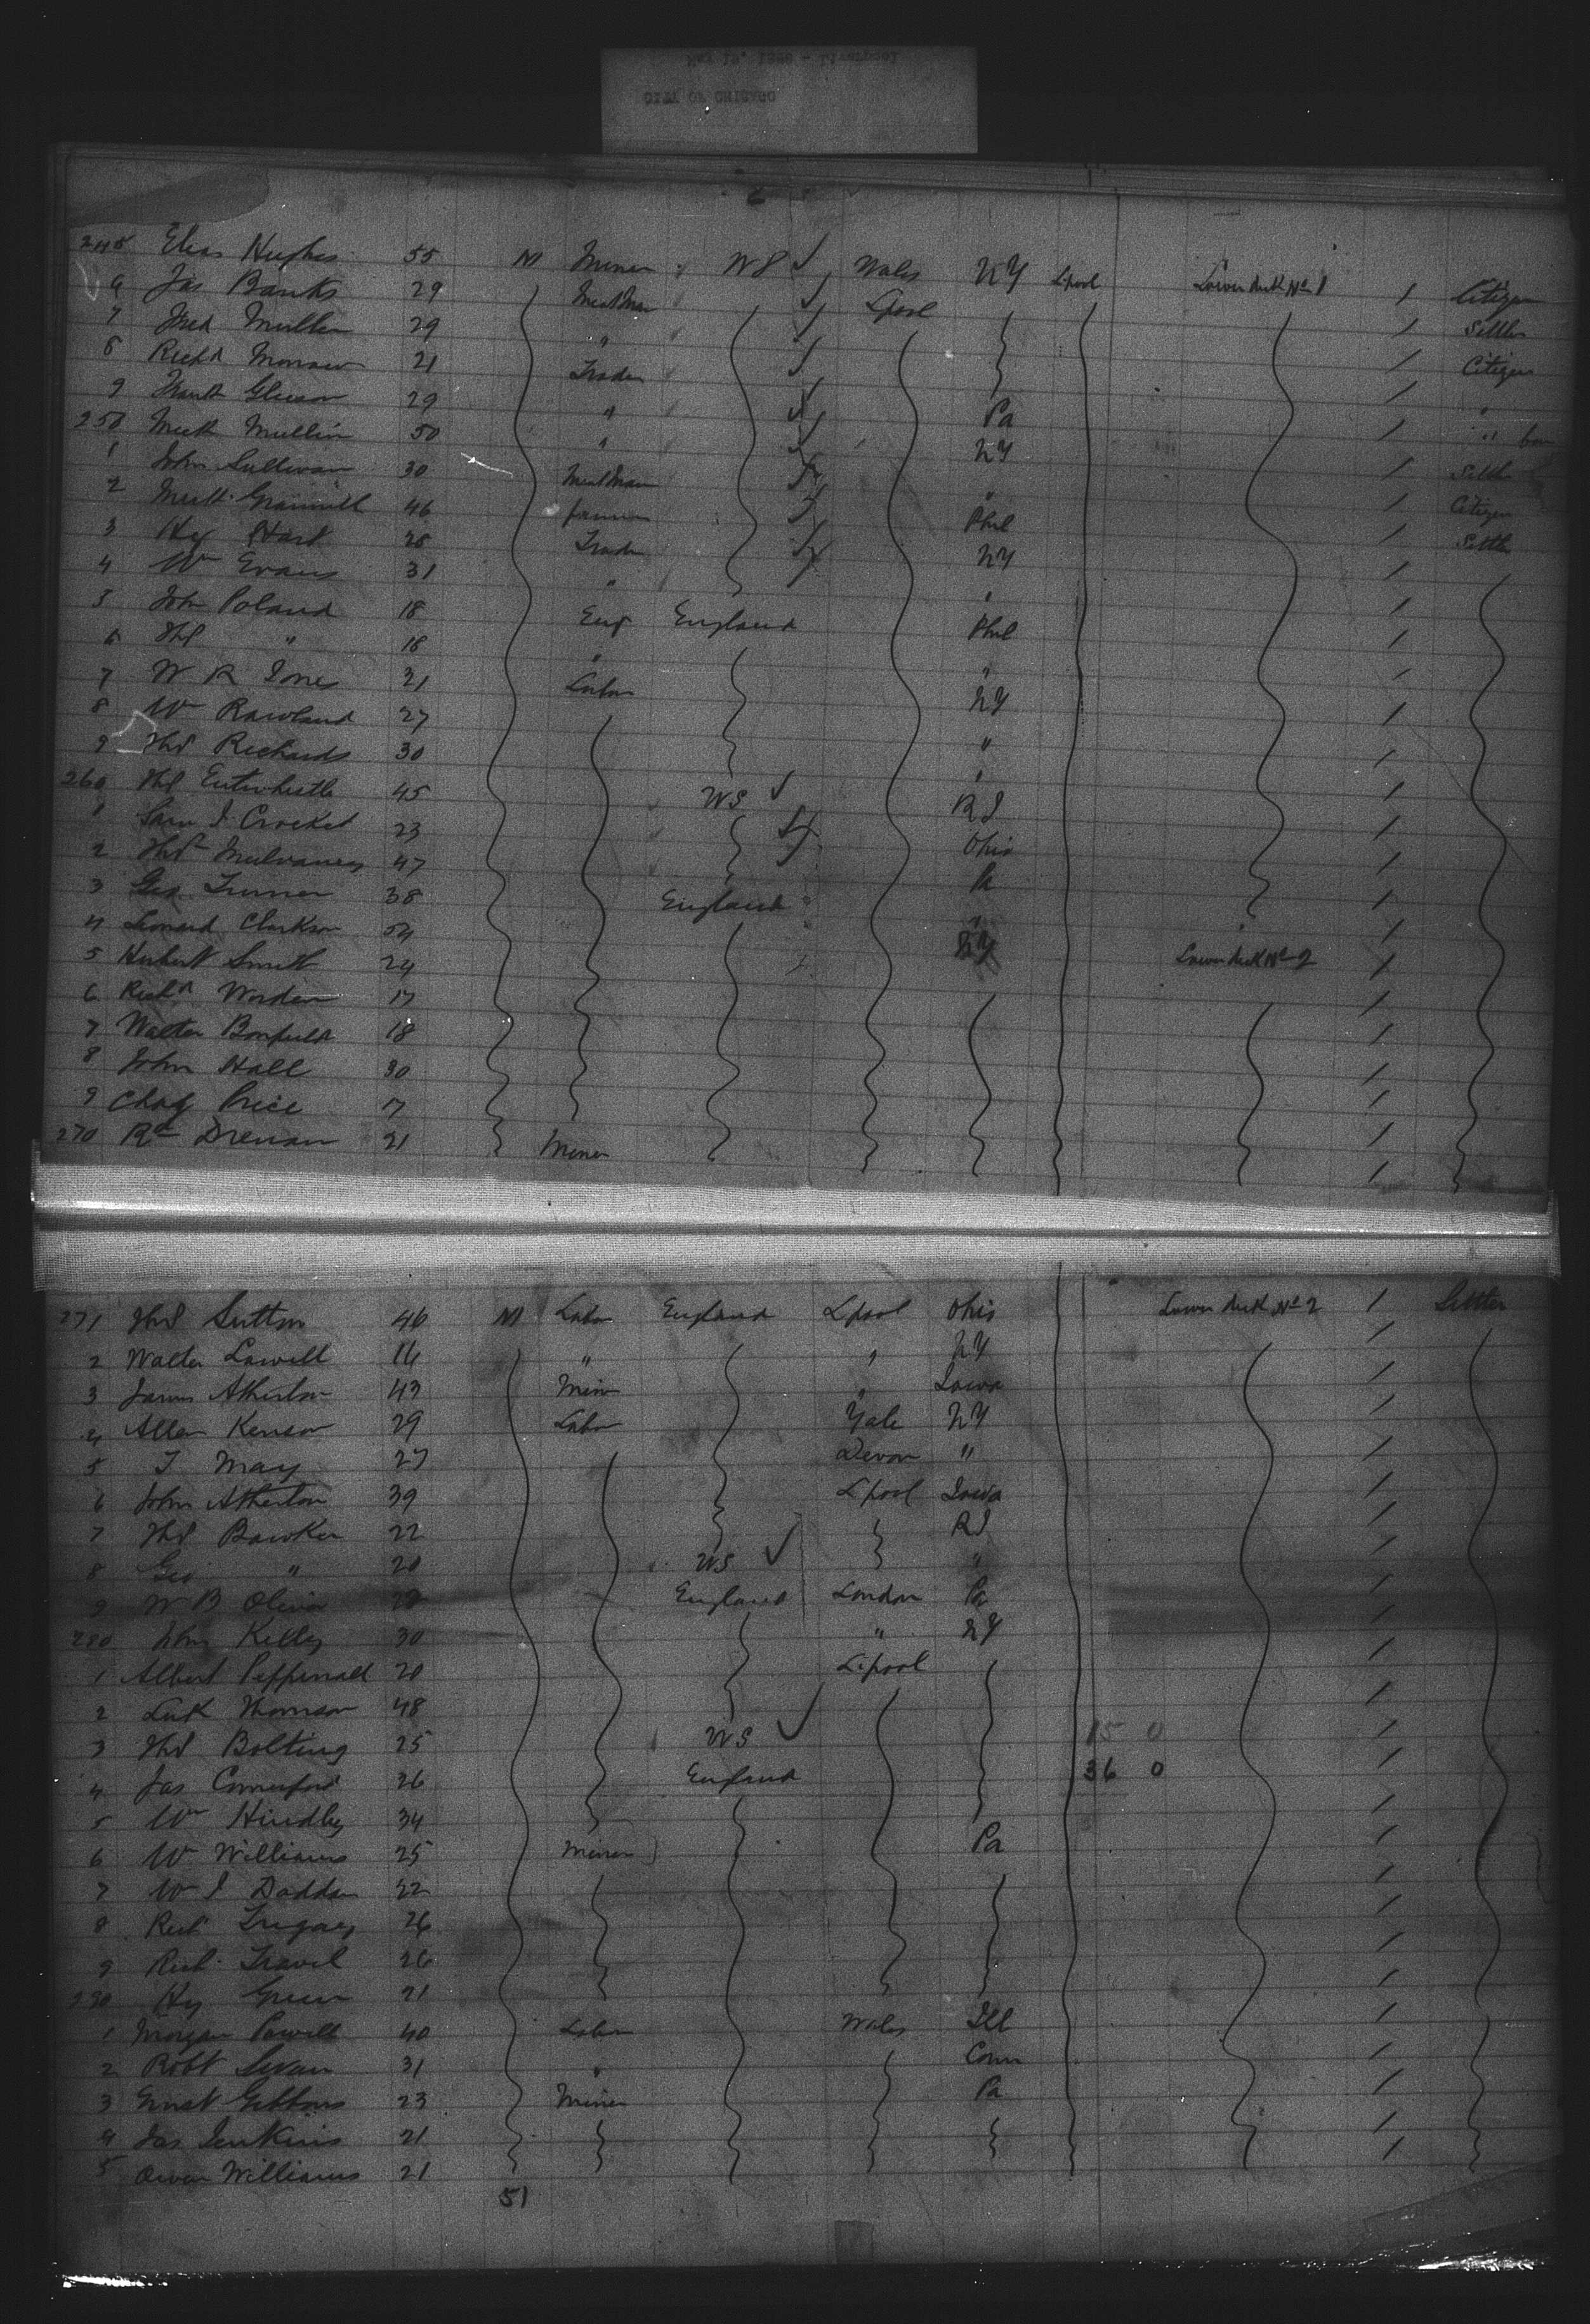 CITY OF CHICAGO
6
245 Elias Hughes 55 M Miner WS Wales NY Lpool Lower deck No 1 1 Citizen
6 Jas Banks 29 Lpool 1 Settler
7 Fred Muller 29 " 1 Citizen
8 Richd Morrow 21 Trader 1 "
9 Frank Gleeson 29 " Pa 1 "
250 Mullin 50 " NY 1 Settler
1 John Sullivan 30 " 1 Citizen
2 46 farmer Phil 1 Settler
3 Hy Hart 28 Trader NY 1
4 Wm Evans 31 " " 1
5 John Poland 18 Eng England Phil 1
6 Thos " 18 " " 1
7 W R Jones 21 Labor NY 1
8 Wm Rawland 27 " 1
9 Thos Richards 30 " 1
260 Thos Entwhistle 45 WS RI 1
1 Sam J Crocket 23 Ohio 1
2 Thos Mulvaney 47 Pa 1
3 Geo Turner 38 England " 1
4 Leonard Clarkson 54 NY 1
5 Herbert Smith 24 Lower deck No 2 1
6 Richd Worden 17 1
7 Walter Bonfield 18 1
8 John Hall 30 1
9 Chas Price 17 1
270 Rd Drenan 21 Miner 1
271 Thos Sutton 46 M Labor England Lpool Ohio Lower deck No 2 1 Settler
2 Walter Lawell 16 " " NY 1
3 James Atherton 43 Miner " Iowa 1
4 Allen Kenson 29 Labor Yale NY 1
5 T May 27 Devon " 1
6 John Atherton 39 Lpool Iowa 1
7 Thos Bawker 22 RI 1
8 Geo " 20 WS " 1
9 W B Oliver England London Pa 1
280 John Kelly 30 " NY 1
1 Albert Pepperall 20 Lpool 1
2 Luk Thomson 48 1
3 Thos Bolting 25 WS 15 0 1
4 Jas Comerford 26 England 36 0 1
5 Wm Hindley 34 1
6 W Williams 25 Miner Pa 1
7 W J Dadda 22 1
8 Rich Tregoay 26 1
9 Rich Travel 26 1
290 Hy Green 21 1
1 Morgan Powell 40 Labor Wales Ill 1
2 Robt Swan 31 " Conn 1
3 Ernest Gibbons 23 Miner Pa 1
4 Jas Jenkins 21 1
5 Owen Williams 21 1
51